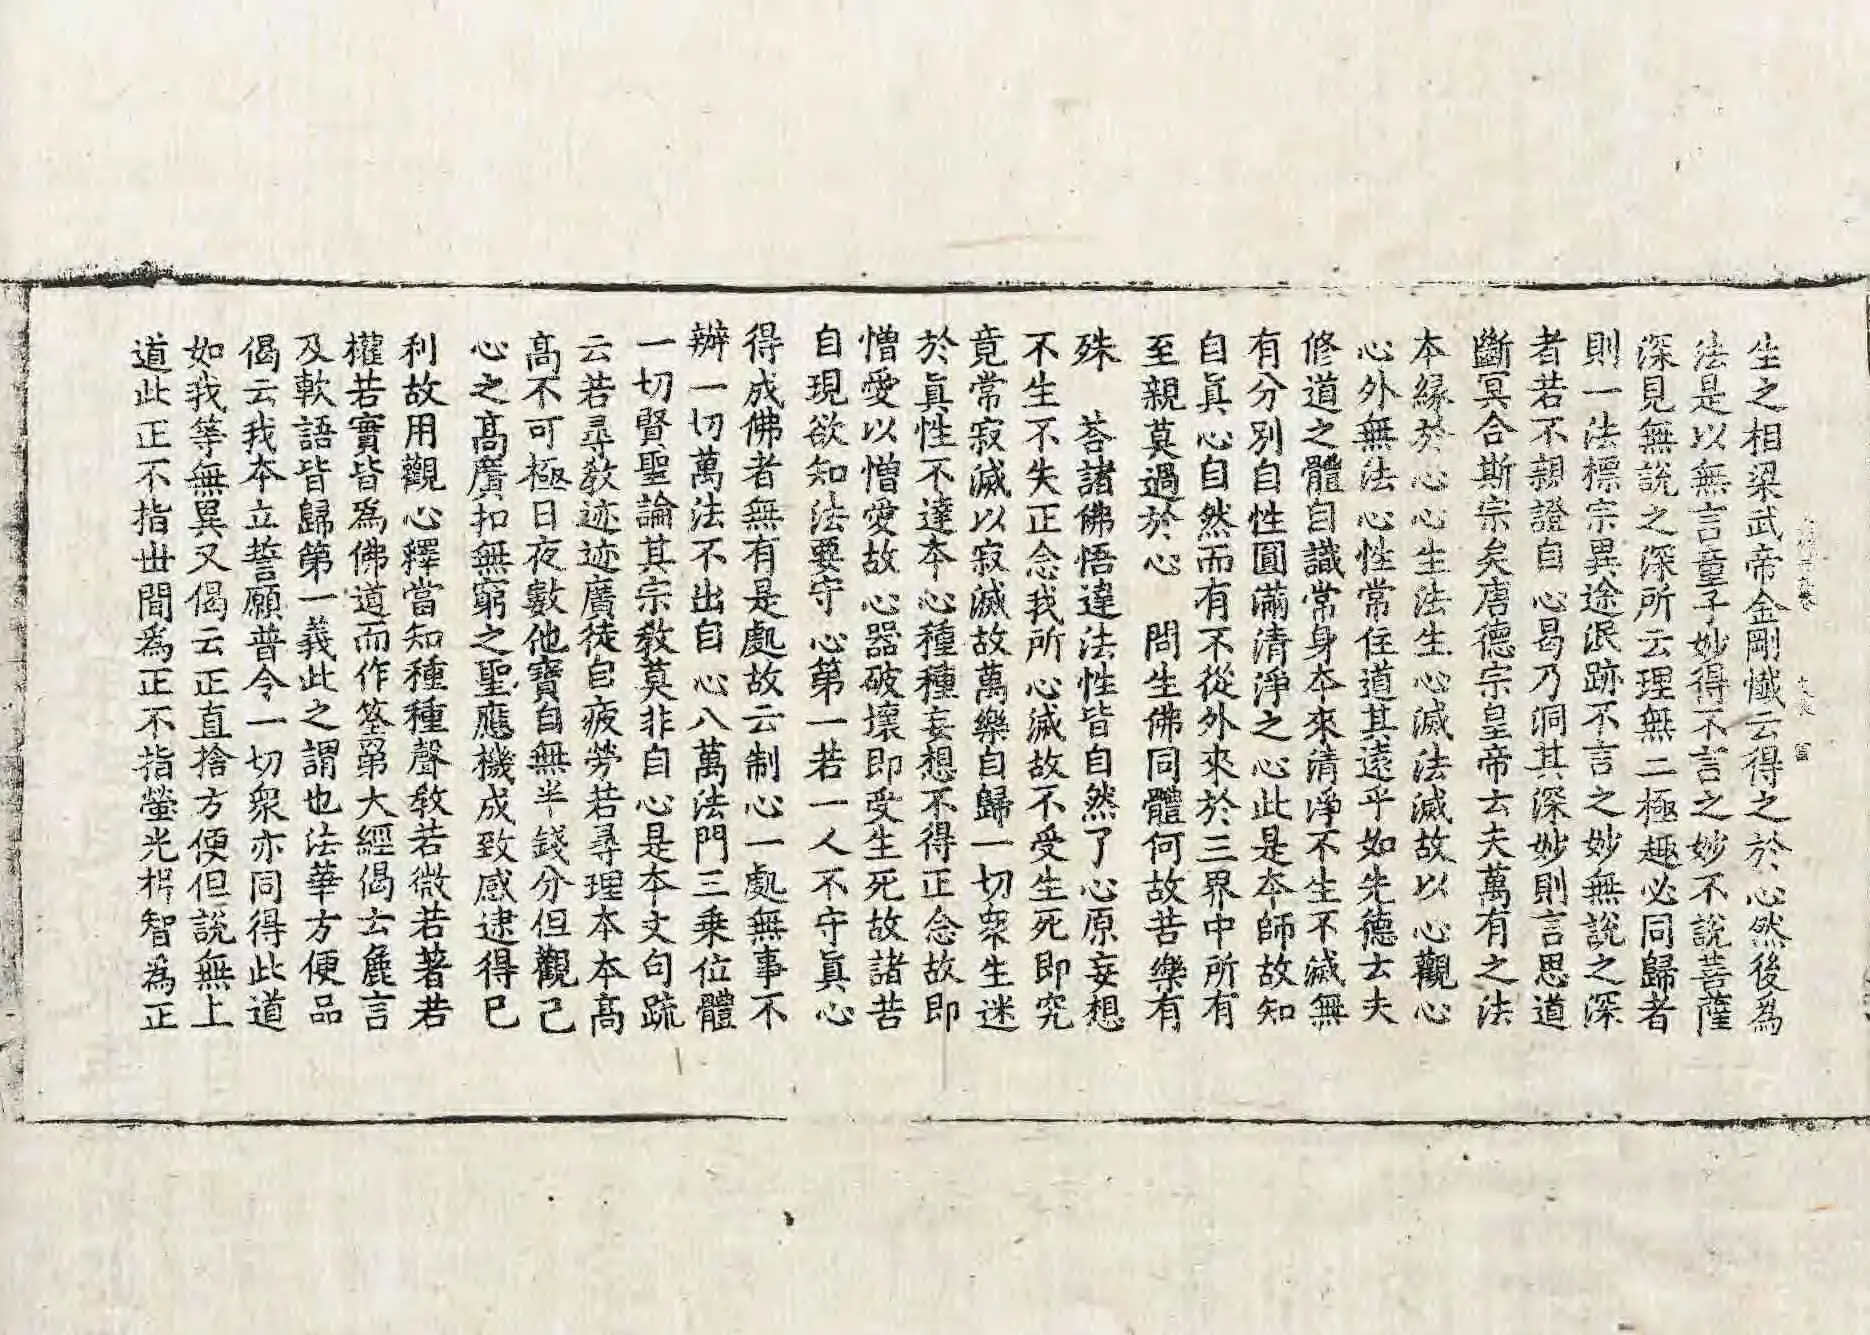 生之相梁武帝金剛懺云得之於心然後為
法是以無言童子妙得不言之妙不說菩薩
深見無說之深所云理無二極趣必同歸者
則一法標宗異途泯跡不言之妙無說之深
者若不親證自心曷乃洞其深妙則言思道
斷冥合斯宗矣唐德宗皇帝云夫萬有之法
本緣於心心生法生心滅法滅故以心觀心
心外無法心性常住道其遠乎如先德云夫
修道之體自識常身本來清淨不生不滅無
有分別自性圓滿清淨之心此是本師故知
自真心自然而有不從外來於三界中所有
至親莫過於心 問生佛同體何故苦樂有
殊 荅諸佛悟達法性皆自然了心原妄想
不生不失正念我所心滅故不受生死即究
竟常寂滅以寂滅故萬樂自歸一切眾生迷
於真性不達本心種種妄想不得正念故即
憎愛以憎愛故心器破壞即受生死故諸苦
自現欲知法要守心第一若一人不守真心
得成佛者無有是處故云制心一處無事不
辦一切萬法不出自心八萬法門三乘位體
一切賢聖論其宗教莫非自心是本文句疏
云若尋教迹迹廣徒自疲勞若尋理本本高
高不可極日夜數他寶自無半錢分但觀己
心之高廣扣無窮之聖應機成致感逮得己
利故用觀心釋當知種種聲教若微若著若
權若實皆為佛道而作筌第大經偈云麁言
及軟語皆歸第一義此之謂也法華方便品
偈云我本立誓願普令一切眾亦同得此道
如我等無異又偈云正直捨方便但說無上
道此正不指世間為正不指螢光析智為正